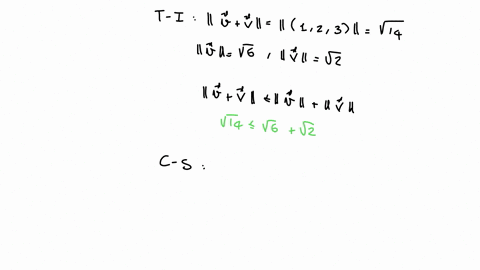 T-I : ‖ v⃗ + v⃗ ‖ = ‖ (1, 2, 3) ‖ = √14
‖ v⃗ ‖ = √6 , ‖ v⃗ ‖ = √2
‖ v⃗ + v⃗ ‖ ≤ ‖ v⃗ ‖ + ‖ v⃗ ‖
√14 ≤ √6 + √2
C-S :